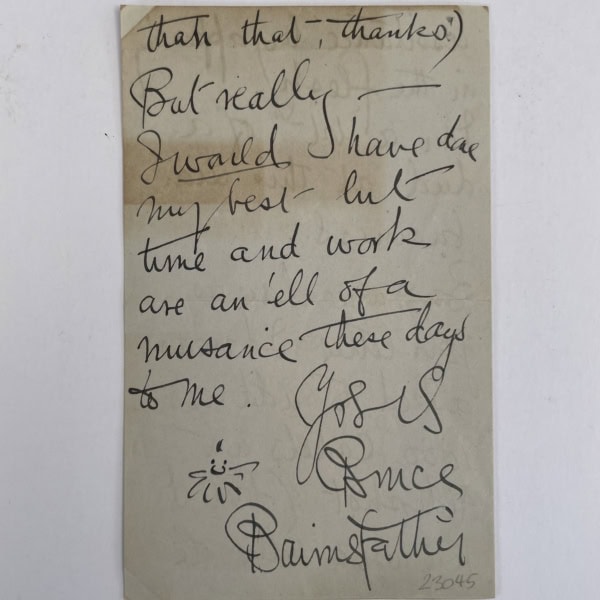 than that, thanks!)
But really —
I would have done
my best but
time and work
are an 'ell of a
nuisance these days
to me.
Yours
Bruce
Bairnsfather
23045